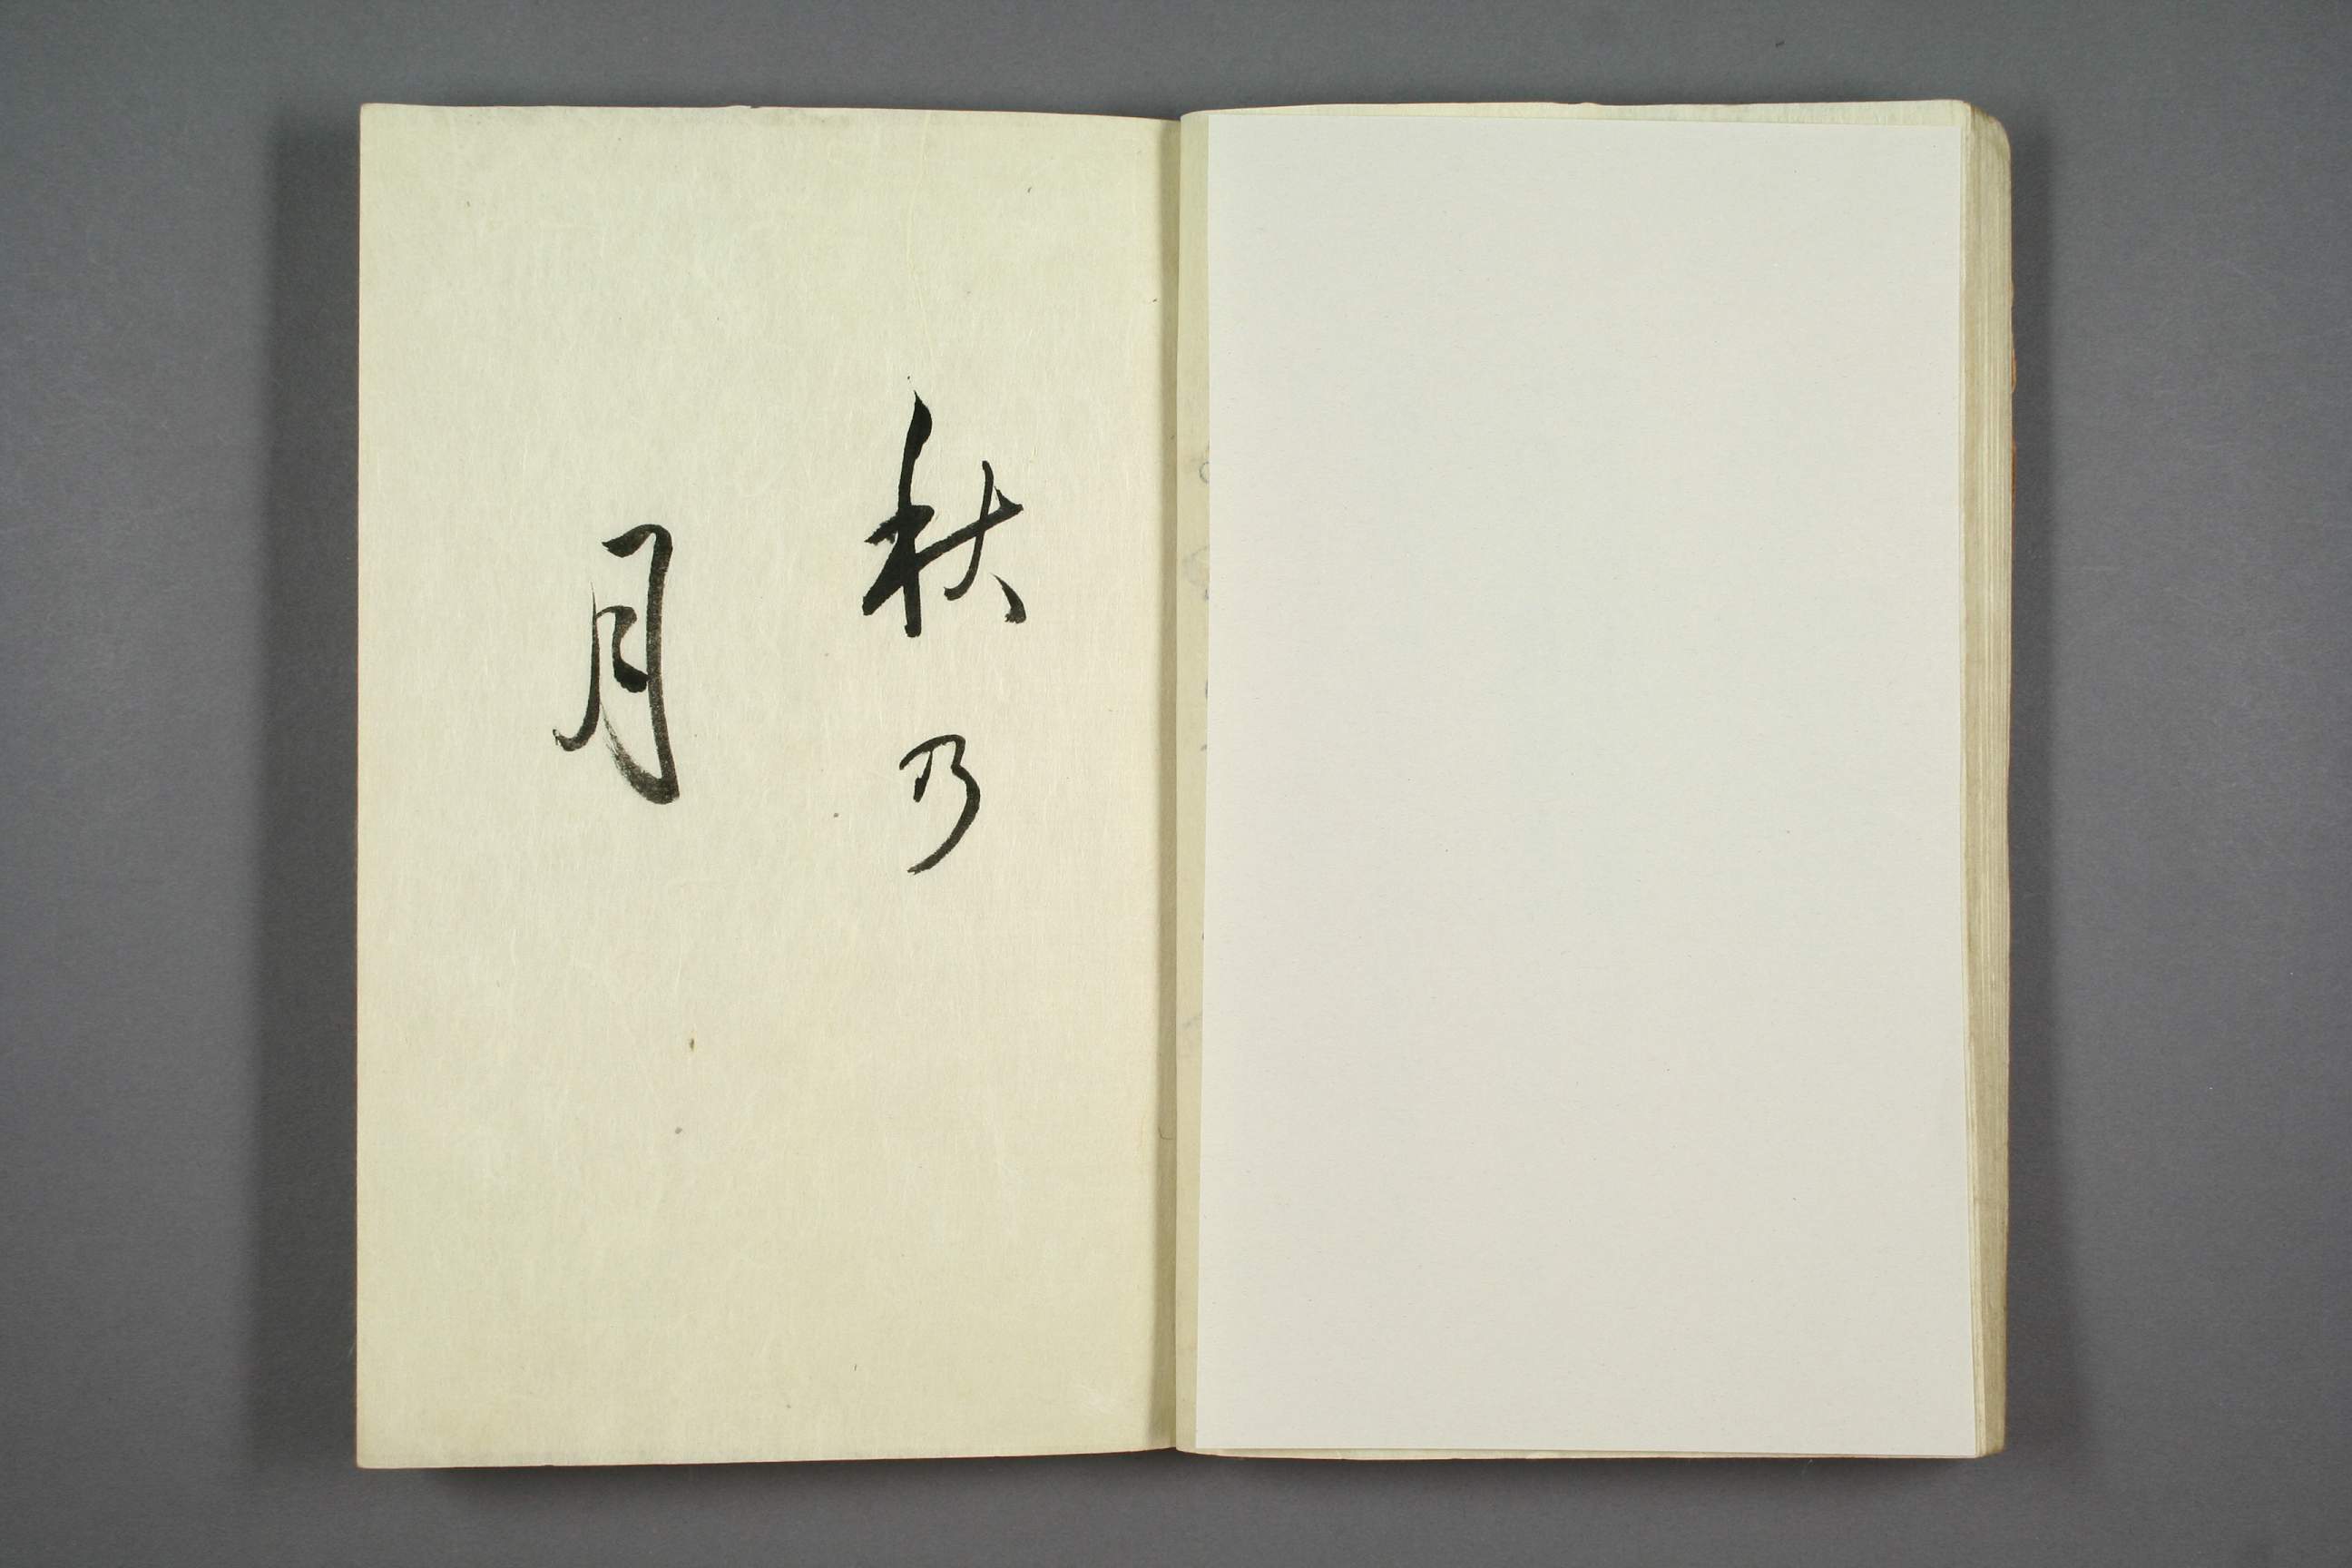 秋乃
月